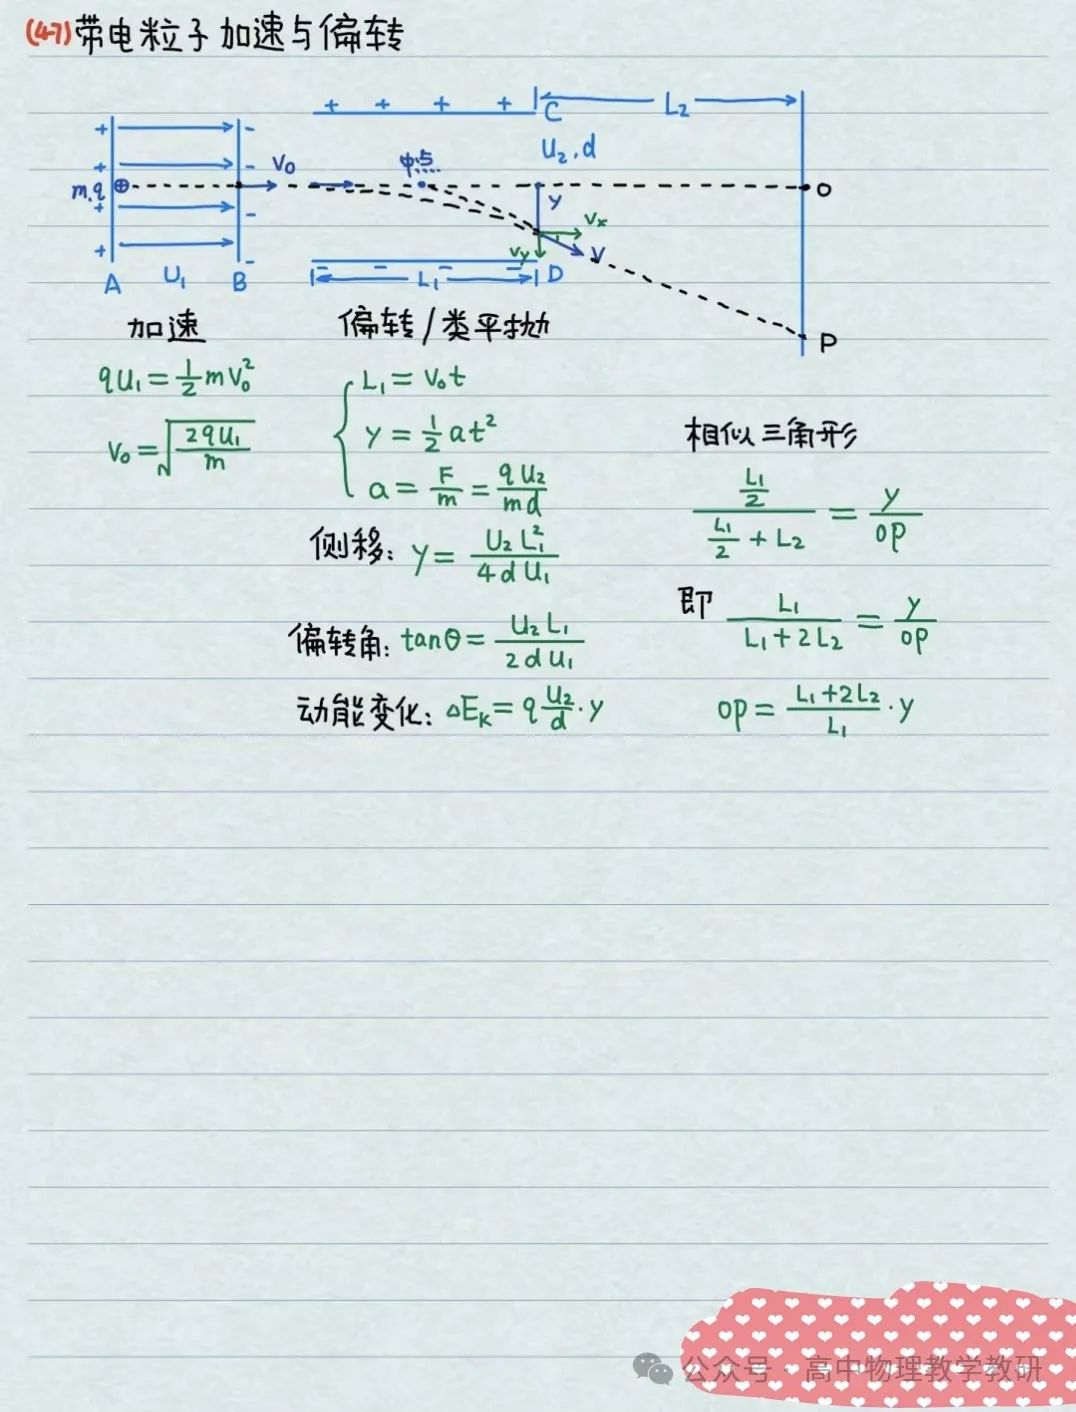 (47)带电粒子加速与偏转
+ + + + C L₂
+ - U₂.d
+ - V₀ 中点
m.q ⊕ y O
+ - Vx
+ - Vy V
A U₁ B - - - - L₁ D
P
加速 偏转/类平抛
qU₁=½mV₀²
V₀=√(2qU₁/m)
L₁=V₀t
y=½at²
a=F/m=qU₂/md
侧移: y=U₂L₁²/4dU₁
偏转角: tanθ=U₂L₁/2dU₁
动能变化: △Eₖ=q U₂/d·y
相似三角形
(L₁/2)/(L₁/2+L₂)=y/OP
即 L₁/(L₁+2L₂)=y/OP
OP=(L₁+2L₂)/L₁·y
公众号·高中物理教学教研